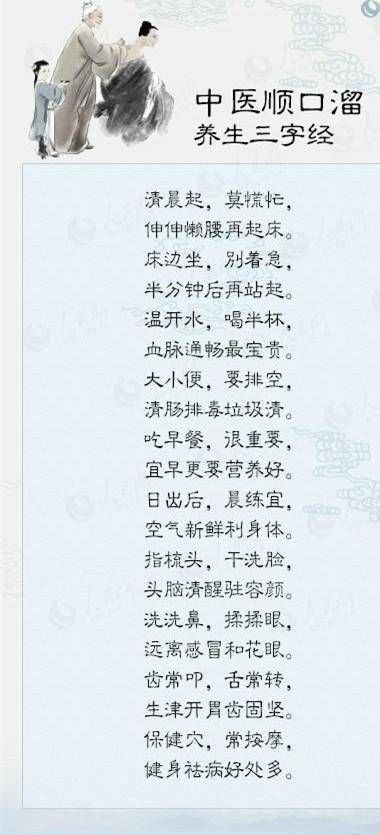 中医顺口溜
养生三字经
清晨起，莫慌忙，
伸伸懒腰再起床。
床边坐，别着急，
半分钟后再站起。
温开水，喝半杯，
血脉通畅最宝贵。
大小便，要排空，
清肠排毒垃圾清。
吃早餐，很重要，
宜早更要营养好。
日出后，晨练宜，
空气新鲜利身体。
指梳头，干洗脸，
头脑清醒驻容颜。
洗洗鼻，揉揉眼，
远离感冒和花眼。
齿常叩，舌常转，
生津开胃齿固坚。
保健穴，常按摩，
健身祛病好处多。